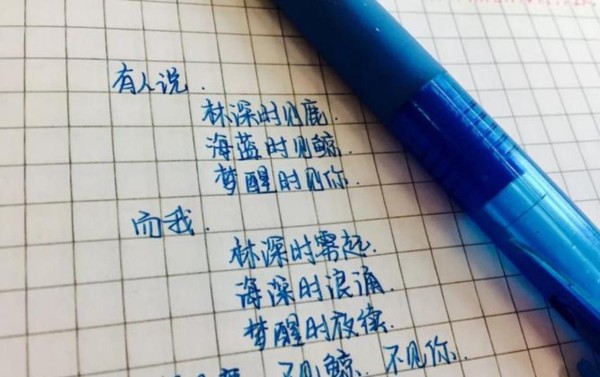 有人说.
林深时见鹿.
海蓝时见鲸.
梦醒时见你.
而我.
林深时雾起.
海深时浪涌.
梦醒时夜续.
不见鲸. 不见你.